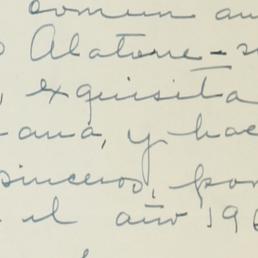 comun
Alatorre-
, exquisita
ana, y hac
sinceros, por
el año 196